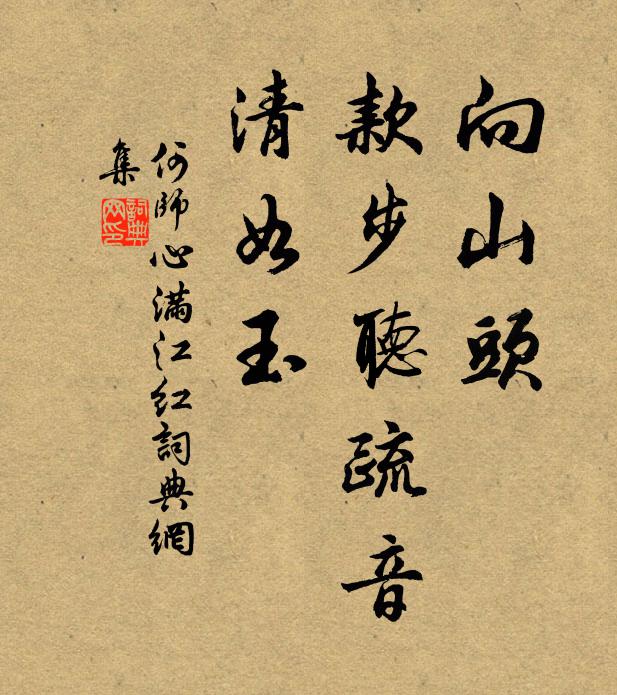 向山頭
款步聽疏音
清如玉
何師心滿江紅詞典網
集
詞典網印